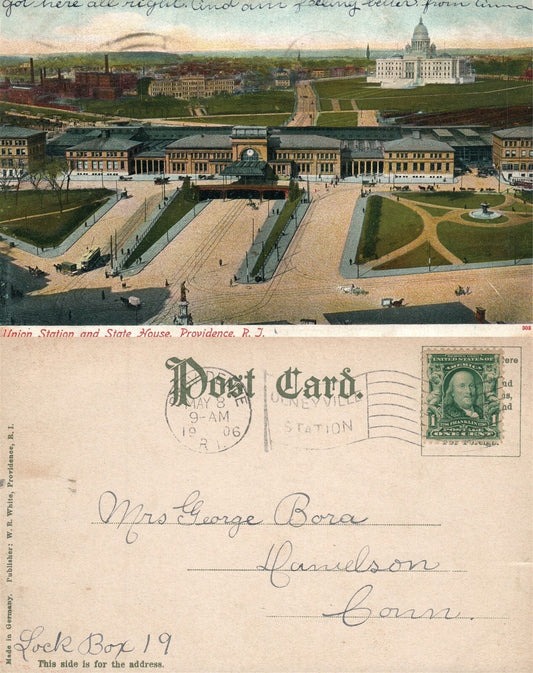 Got here all right. And am feeling better. from Anna
Union Station and State House, Providence, R. I.
302
Post Card.
MAY 8
9-AM
1906
R I
OLNEYVILLE
STATION
UNITED STATES OF AMERICA
1
FRANKLIN
ONE CENT
For Foreign.
Mrs George Bora
Danielson
Conn.
Lock Box 19
This side is for the address.
Made in Germany. Publisher: W. R. White, Providence, R. I.